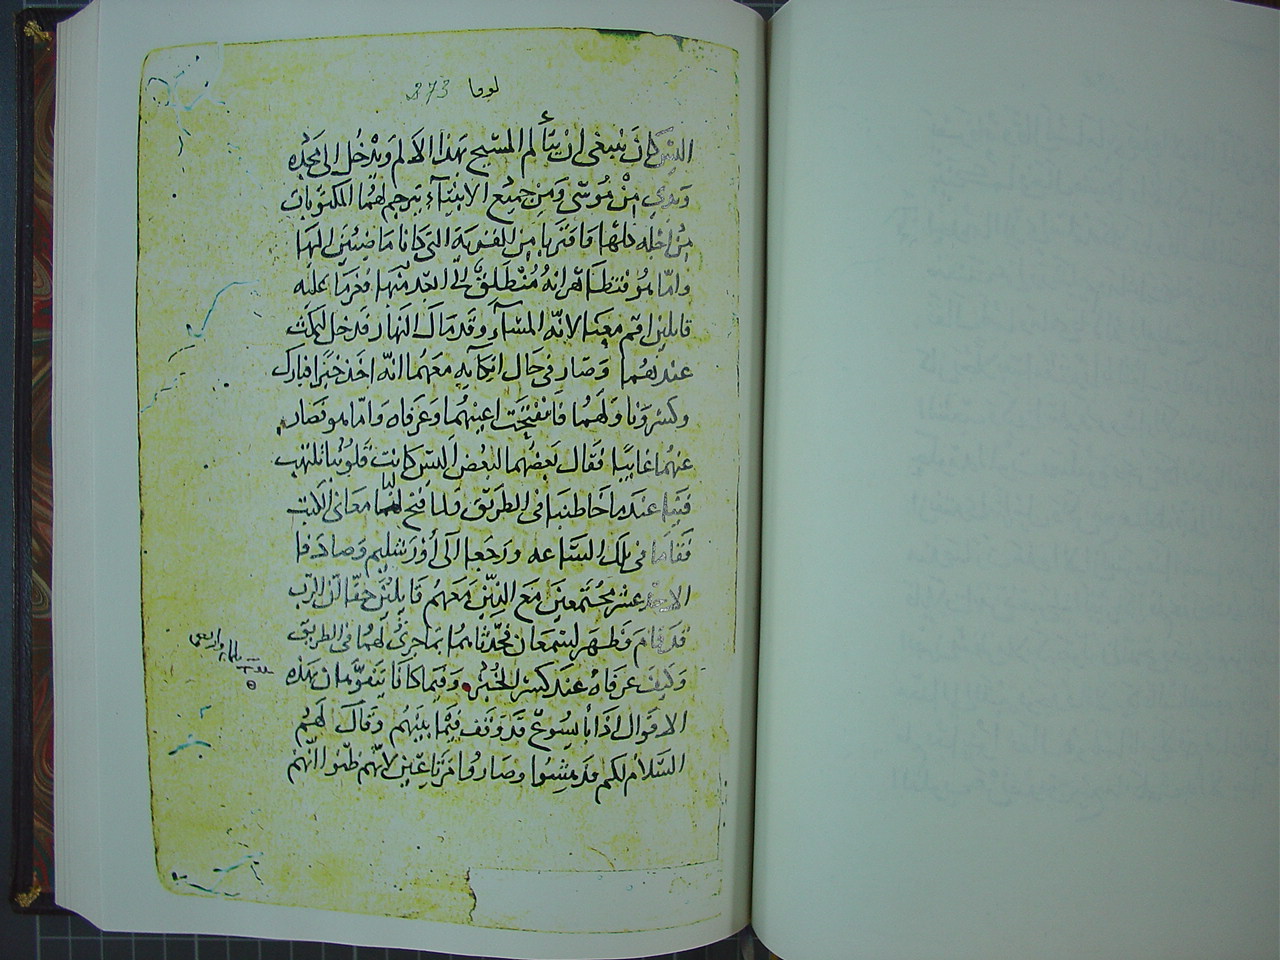 لوقا 273
اليس كان ينبغي ان يتألم المسيح بهذا الالم ويدخل الى مجده
وبدي من موسى ومن جميع الانبيآء يترجم لهما المكتوبات
من اجله كلها فاقتربا من القرية التي كانا ماضيين اليها
واما هو فتظاهر انه منطلق الى ابعد منها فغرما عليه
قايلين اقم معنا لانه المسآء وقد مال النهار فدخل ليمكث
عندهما وصار في حال اتكآيه معهما انه اخذ خبزا فبارك
وكسر وناولهما فانفتحت اعينهما وعرفاه واما هو فصار
عنهما غايبا فقال بعضهما لبعض اليس كانت قلوبنا تلتهب
فينا عندما خاطبنا في الطريق ولما فتح لنا معاني الكتب
فقاما في تلك الساعه ورجعا الى أورشليم وصادفا
الاحد عشر مجتمعين مع الذين معهم قايلين حقا ان الرب
قد قام وظهر لسمعان فحدثاهما بما جرى لهما في الطريق
وكيف عرفاه عند كسر الخبز وفيما كانا يتفوهان بهذه
الاقوال اذا بايسوع قد وقف فيما بينهم وقال لهم
السلام لكم فدهشوا وصاروا مرتاعين لانهم ظنوا انهم